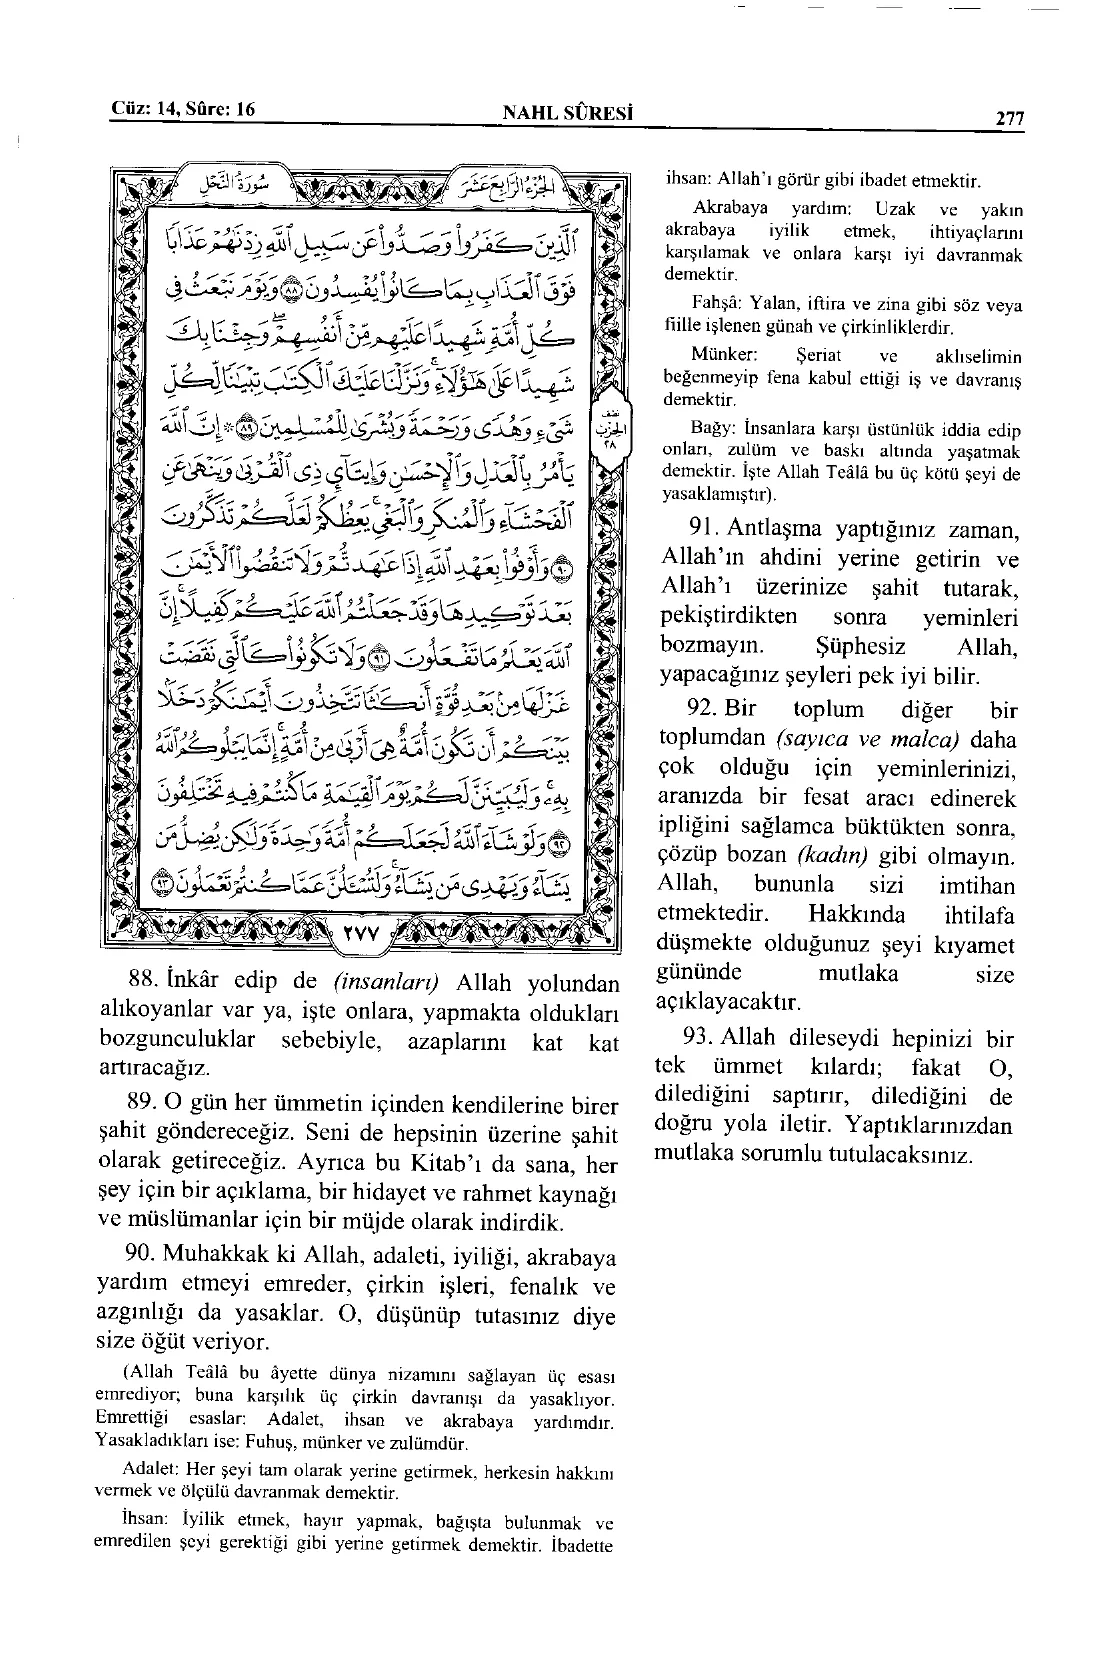 Cüz: 14, Sûre: 16
NAHL SÛRESİ
277
سُورَةُ النَّحْلِ
الجُزْءُ الرَّابِعَ عَشَرَ
الَّذِينَ كَفَرُوا وَصَدُّوا عَن سَبِيلِ اللَّهِ زِدْنَاهُمْ عَذَابًا
فَوْقَ الْعَذَابِ بِمَا كَانُوا يُفْسِدُونَ ۝٨٨ وَيَوْمَ نَبْعَثُ فِي
كُلِّ أُمَّةٍ شَهِيدًا عَلَيْهِم مِّنْ أَنفُسِهِمْ ۖ وَجِئْنَا بِكَ
شَهِيدًا عَلَىٰ هَٰؤُلَاءِ ۚ وَنَزَّلْنَا عَلَيْكَ الْكِتَابَ تِبْيَانًا لِّكُلِّ
شَيْءٍ وَهُدًى وَرَحْمَةً وَبُشْرَىٰ لِلْمُسْلِمِينَ ۝٨٩ * إِنَّ اللَّهَ
يَأْمُرُ بِالْعَدْلِ وَالْإِحْسَانِ وَإِيتَاءِ ذِي الْقُرْبَىٰ وَيَنْهَىٰ عَنِ
الْفَحْشَاءِ وَالْمُنكَرِ وَالْبَغْيِ ۚ يَعِظُكُمْ لَعَلَّكُمْ تَذَكَّرُونَ
۝٩٠ وَأَوْفُوا بِعَهْدِ اللَّهِ إِذَا عَاهَدتُّمْ وَلَا تَنقُضُوا الْأَيْمَانَ
بَعْدَ تَوْكِيدِهَا وَقَدْ جَعَلْتُمُ اللَّهَ عَلَيْكُمْ كَفِيلًا ۚ إِنَّ
اللَّهَ يَعْلَمُ مَا تَفْعَلُونَ ۝٩١ وَلَا تَكُونُوا كَالَّتِي نَقَضَتْ
غَزْلَهَا مِن بَعْدِ قُوَّةٍ أَنكَاثًا تَتَّخِذُونَ أَيْمَانَكُمْ دَخَلًا
بَيْنَكُمْ أَن تَكُونَ أُمَّةٌ هِيَ أَرْبَىٰ مِنْ أُمَّةٍ ۚ إِنَّمَا يَبْلُوكُمُ اللَّهُ
بِهِ ۚ وَلَيُبَيِّنَنَّ لَكُمْ يَوْمَ الْقِيَامَةِ مَا كُنتُمْ فِيهِ تَخْتَلِفُونَ
۝٩٢ وَلَوْ شَاءَ اللَّهُ لَجَعَلَكُمْ أُمَّةً وَاحِدَةً وَلَٰكِن يُضِلُّ مَن
يَشَاءُ وَيَهْدِي مَن يَشَاءُ ۚ وَلَتُسْأَلُنَّ عَمَّا كُنتُمْ تَعْمَلُونَ ۝٩٣
نصف
الحزب
٢٨
٢٧٧
88. İnkâr edip de (insanları) Allah yolundan
alıkoyanlar var ya, işte onlara, yapmakta oldukları
bozgunculuklar sebebiyle, azaplarını kat kat
artıracağız.
89. O gün her ümmetin içinden kendilerine birer
şahit göndereceğiz. Seni de hepsinin üzerine şahit
olarak getireceğiz. Ayrıca bu Kitab'ı da sana, her
şey için bir açıklama, bir hidayet ve rahmet kaynağı
ve müslümanlar için bir müjde olarak indirdik.
90. Muhakkak ki Allah, adaleti, iyiliği, akrabaya
yardım etmeyi emreder, çirkin işleri, fenalık ve
azgınlığı da yasaklar. O, düşünüp tutasınız diye
size öğüt veriyor.
(Allah Teâlâ bu âyette dünya nizamını sağlayan üç esası
emrediyor; buna karşılık üç çirkin davranışı da yasaklıyor.
Emrettiği esaslar: Adalet, ihsan ve akrabaya yardımdır.
Yasakladıkları ise: Fuhuş, münker ve zulümdür.
Adalet: Her şeyi tam olarak yerine getirmek, herkesin hakkını
vermek ve ölçülü davranmak demektir.
İhsan: İyilik etmek, hayır yapmak, bağışta bulunmak ve
emredilen şeyi gerektiği gibi yerine getirmek demektir. İbadette
ihsan: Allah'ı görür gibi ibadet etmektir.
Akrabaya yardım: Uzak ve yakın
akrabaya iyilik etmek, ihtiyaçlarını
karşılamak ve onlara karşı iyi davranmak
demektir.
Fahşâ: Yalan, iftira ve zina gibi söz veya
fiille işlenen günah ve çirkinliklerdir.
Münker: Şeriat ve aklıselimin
beğenmeyip fena kabul ettiği iş ve davranış
demektir.
Bağy: İnsanlara karşı üstünlük iddia edip
onları, zulüm ve baskı altında yaşatmak
demektir. İşte Allah Teâlâ bu üç kötü şeyi de
yasaklamıştır).
91. Antlaşma yaptığınız zaman,
Allah'ın ahdini yerine getirin ve
Allah'ı üzerinize şahit tutarak,
pekiştirdikten sonra yeminleri
bozmayın. Şüphesiz Allah,
yapacağınız şeyleri pek iyi bilir.
92. Bir toplum diğer bir
toplumdan (sayıca ve malca) daha
çok olduğu için yeminlerinizi,
aranızda bir fesat aracı edinerek
ipliğini sağlamca büktükten sonra,
çözüp bozan (kadın) gibi olmayın.
Allah, bununla sizi imtihan
etmektedir. Hakkında ihtilafa
düşmekte olduğunuz şeyi kıyamet
gününde mutlaka size
açıklayacaktır.
93. Allah dileseydi hepinizi bir
tek ümmet kılardı; fakat O,
dilediğini saptırır, dilediğini de
doğru yola iletir. Yaptıklarınızdan
mutlaka sorumlu tutulacaksınız.